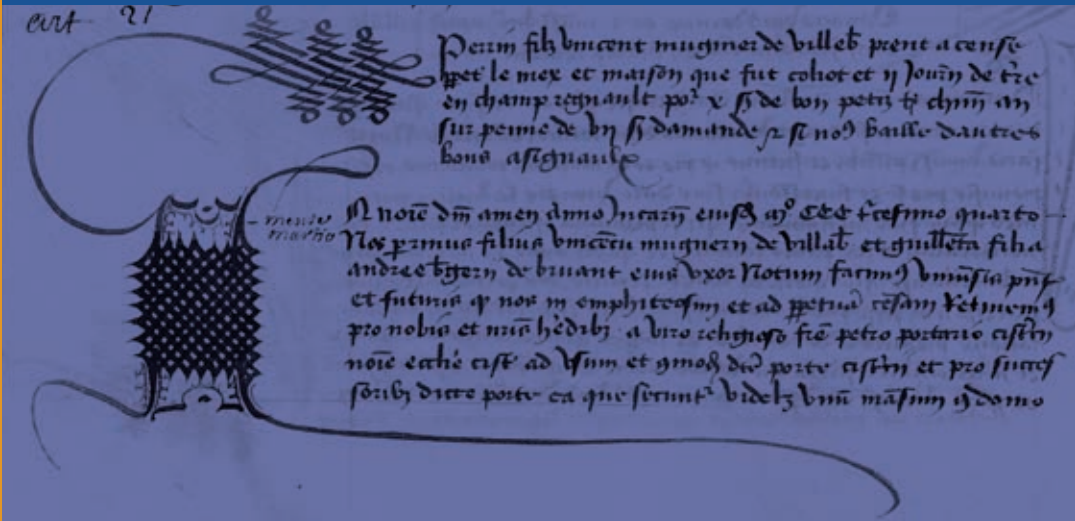 art 21
Perrin filz vincent muginer de villeb prent a cense
ppet le mex et maison que fut cohot et ij Journ de tre
en champ regnault por x s de bon petiz chun an
sur peinne de vii s damande si no9 baille dautres
bons asignaulx
mense martio
Jn noie dm amen Anno Jncarn eiusd mo CCC tcesimo quarto
Nos primus filius vincentii mugnerii de villab et guilleta filia
andree de bruant eius vxor Notum facim9 vniusis pnt
et futuris q nos in emphiteosim et ad ppetua cesam Retinem9
pro nobis et nris hedib a viro religioso fre petro portario cistn
noie ecclie cist ad vsum et dte porte cistn et pro succes
sorib dicte porte ea que secunt videlz vnu masum domo